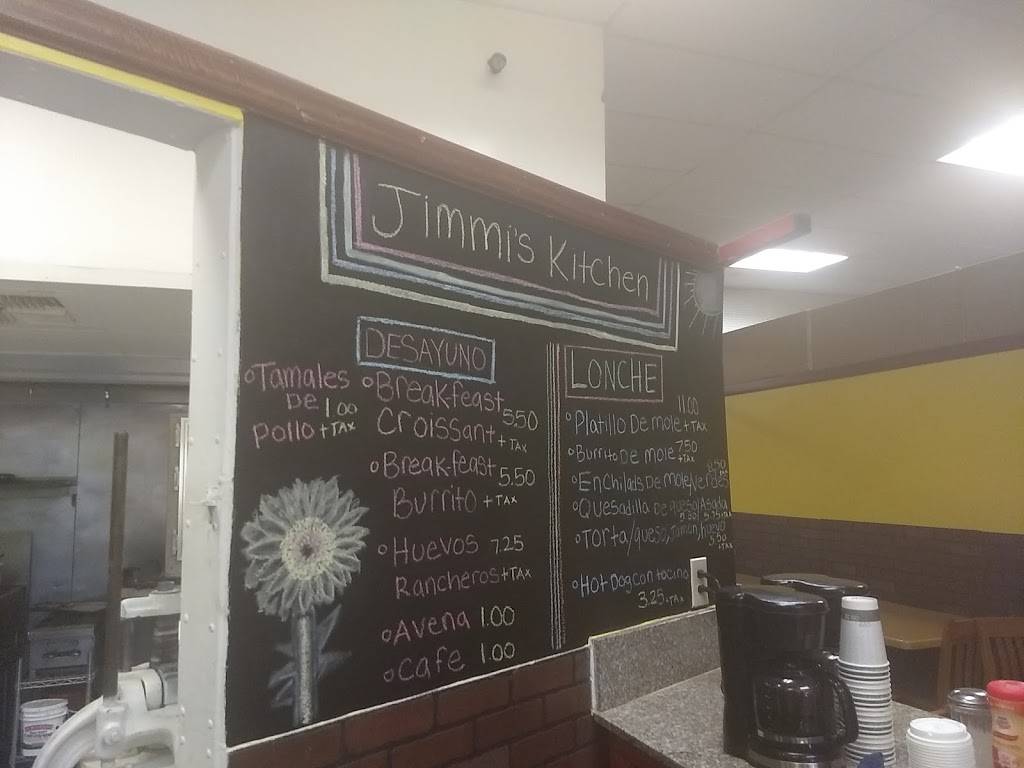 Jimmi's Kitchen
DESAYUNO
Tamales
De 1.00
Pollo + TAX
Breakfeast
Croissant 5.50
+ TAX
Breakfeast
Burrito 5.50
+ TAX
Huevos 7.25
Rancheros + TAX
Avena 1.00
Cafe 1.00
LONCHE
11.00
Platillo De mole + TAX
Burrito De mole 7.50
+ TAX
Enchiladas De mole
Quesadilla de queso/Asada
Torta/queso, Jamon,
5.50
+ TAX
Hot Dog con tocino
3.25 + TAX